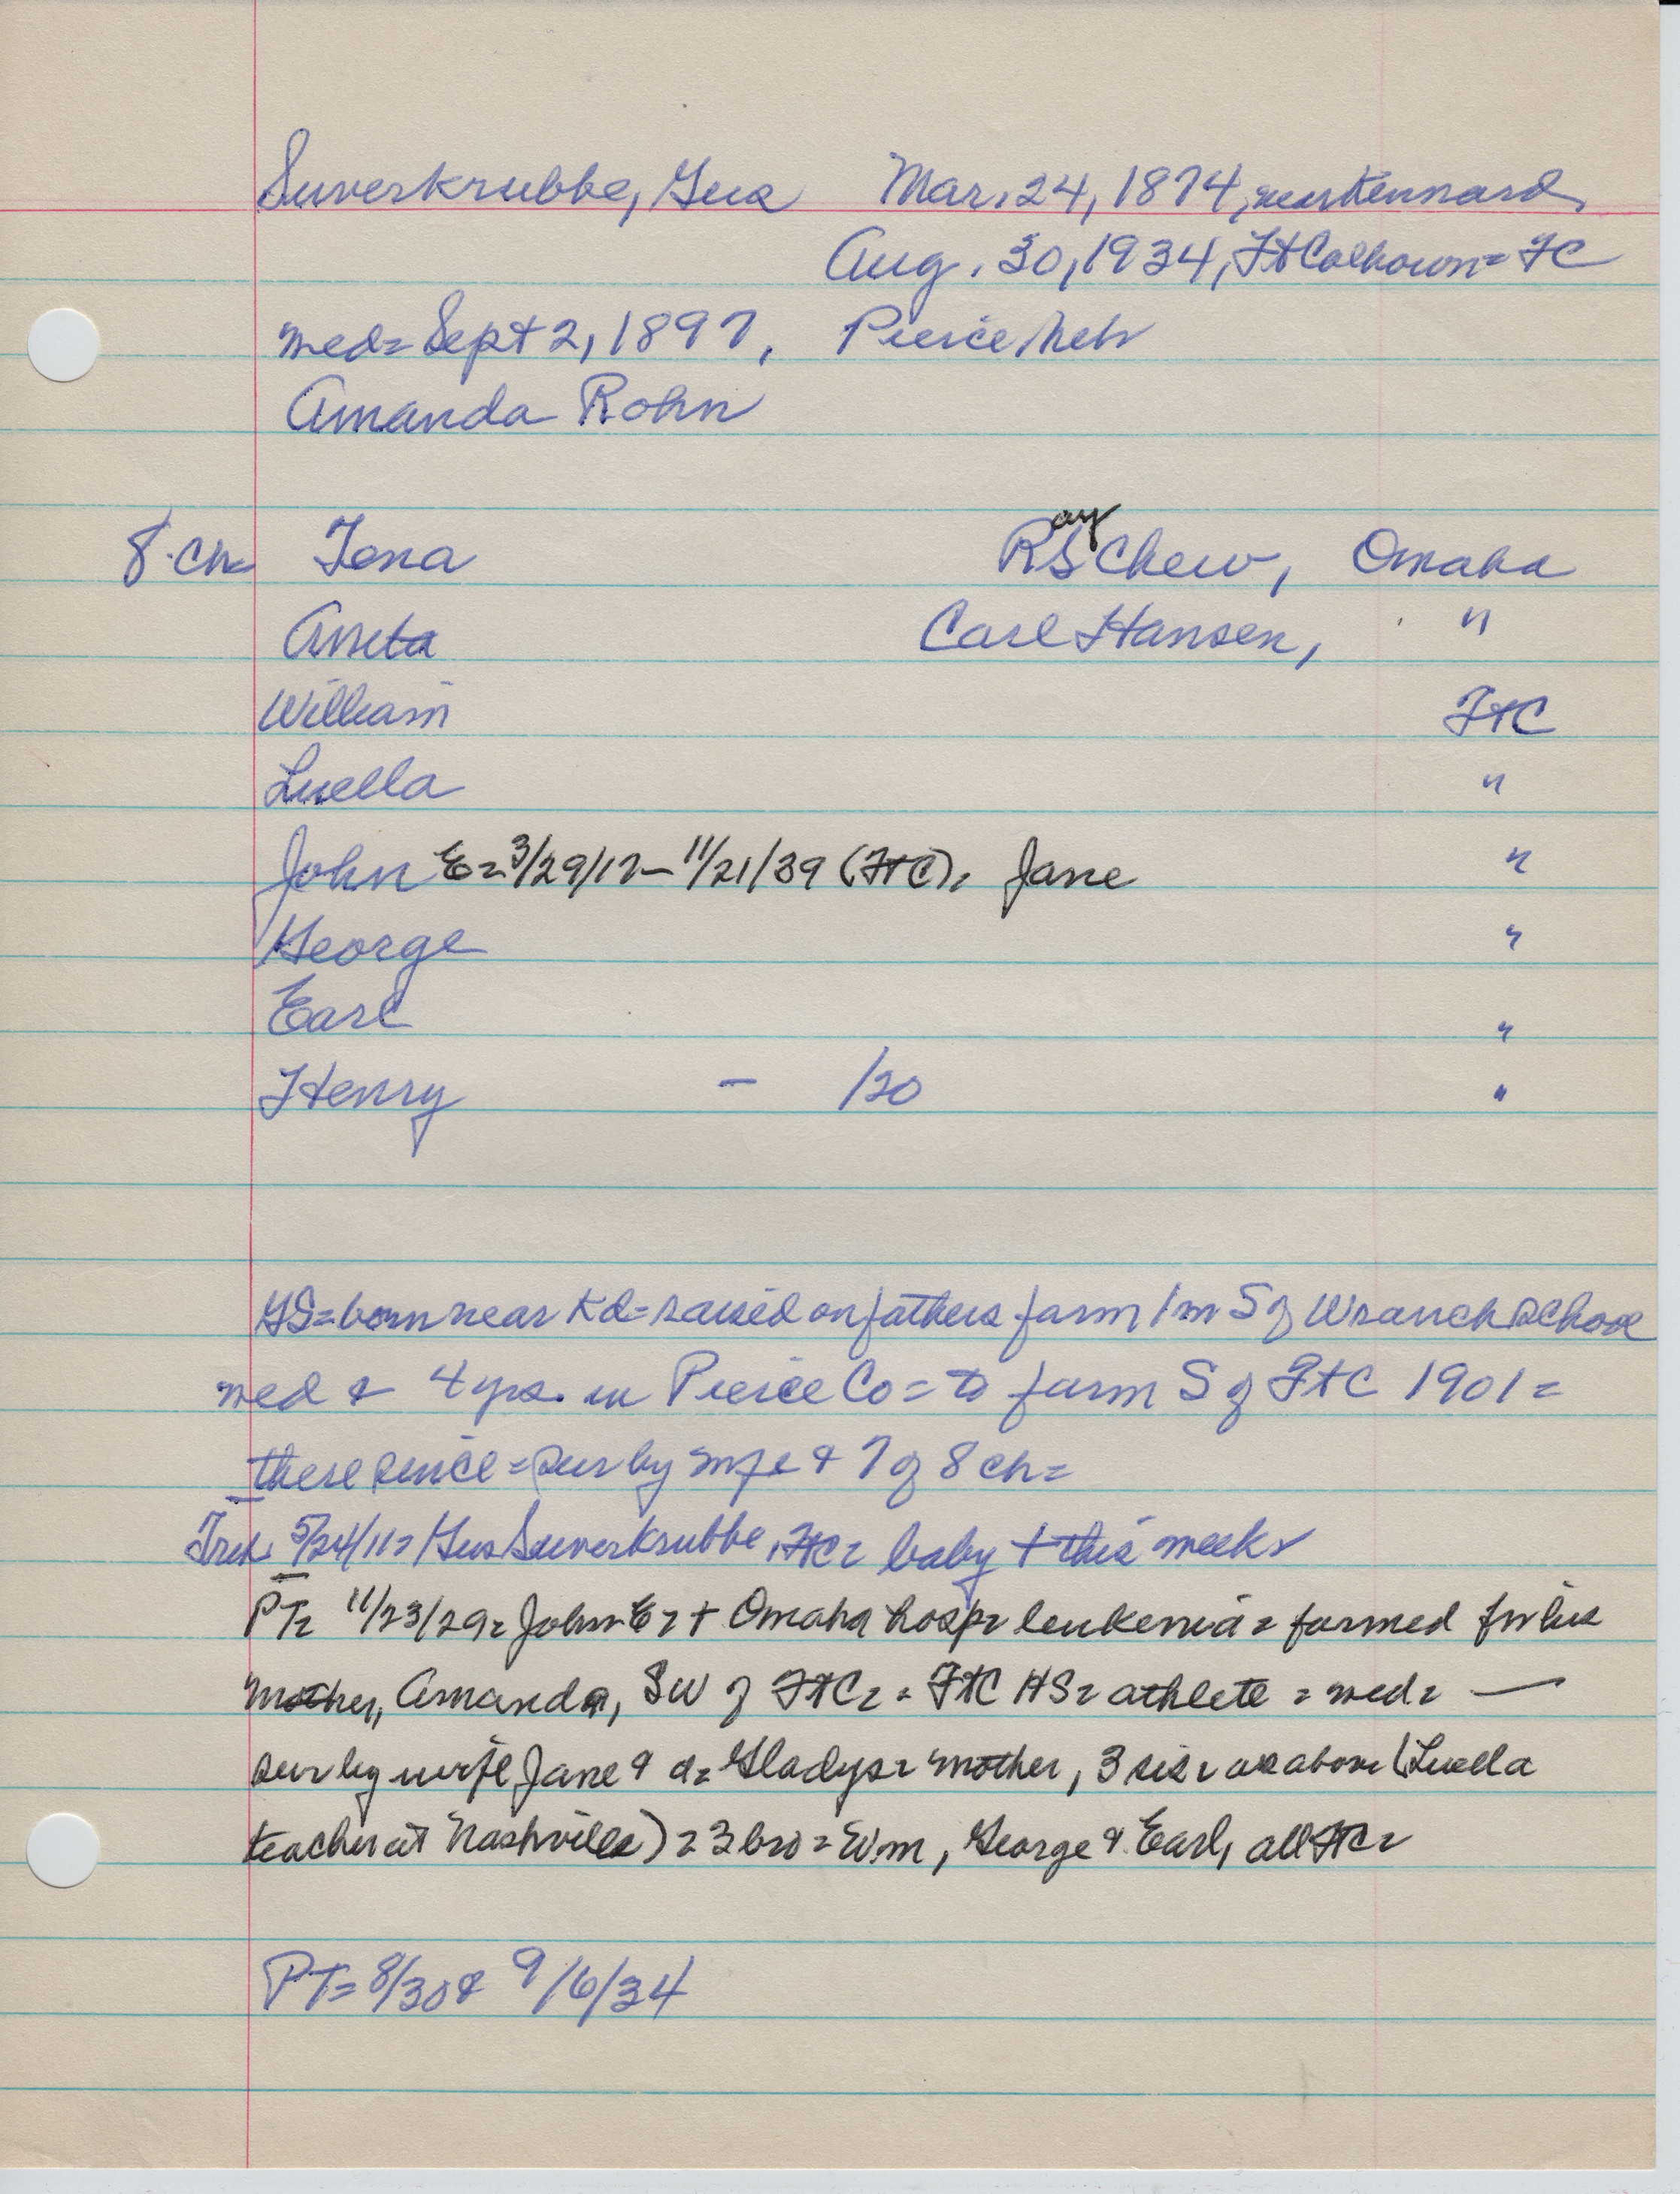 Suverkrubbe, Gus Mar. 24, 1874, near Kennard
Aug. 30, 1934, Ft Calhoun = FC
med = Sept 2, 1897, Pierce, Neb
Amanda Rohn
8 ch = Tena Ray S Chew, Omaha
Aneta Carl Hansen, "
William FtC
Luella "
John E = 3/29/12 - 11/21/39 (FtC) = Jane "
George "
Earl "
Henry - /20 "
GS = born near Kd = raised on fathers farm 1 m S of Wranch school
med & 4 yrs. in Pierce Co = to farm S of FtC 1901 =
there since = sur by wife & 7 of 8 ch =
5/24/11 = Gus Suverkrubbe, FtC = baby + this week
PT = 11/23/29 = John E = + Omaha hosp = leukemia = farmed for his
mother, Amanda, SW of FtC = = FtC HS = athlete = med = —
sur by wife Jane & d = Gladys = mother, 3 sis = as above (Luella
teacher at Nashville) = 3 bro = Wm, George & Earl, all FtC =
PT = 8/30 & 9/6/34